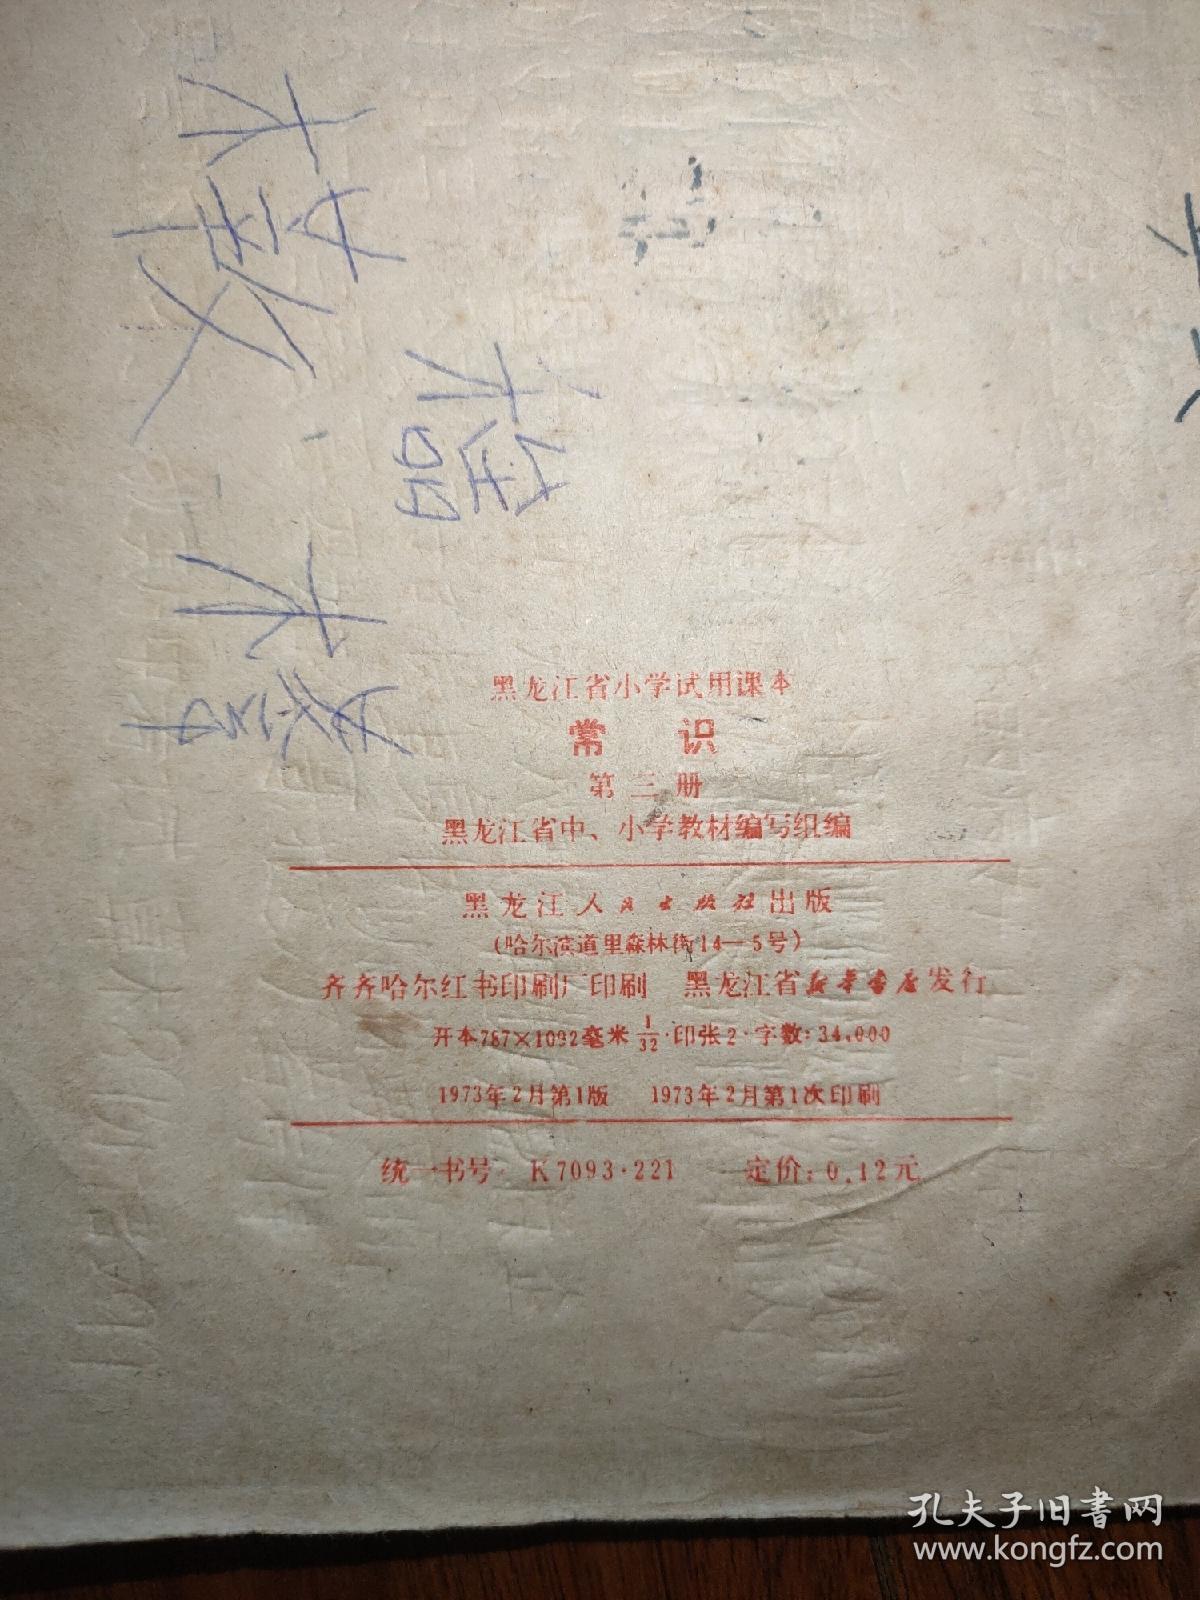 黑龙江省小学试用课本
常 识
第三册
黑龙江省中、小学教材编写组编
黑龙江人民出版社出版
(哈尔滨道里森林街14—5号)
齐齐哈尔红书印刷厂印刷 黑龙江省新华书店发行
开本787×1092毫米 1/32·印张2·字数:34,000
1973年2月第1版 1973年2月第1次印刷
统一书号 K7093·221 定价:0.12元
孔夫子旧書网
www.kongfz.com